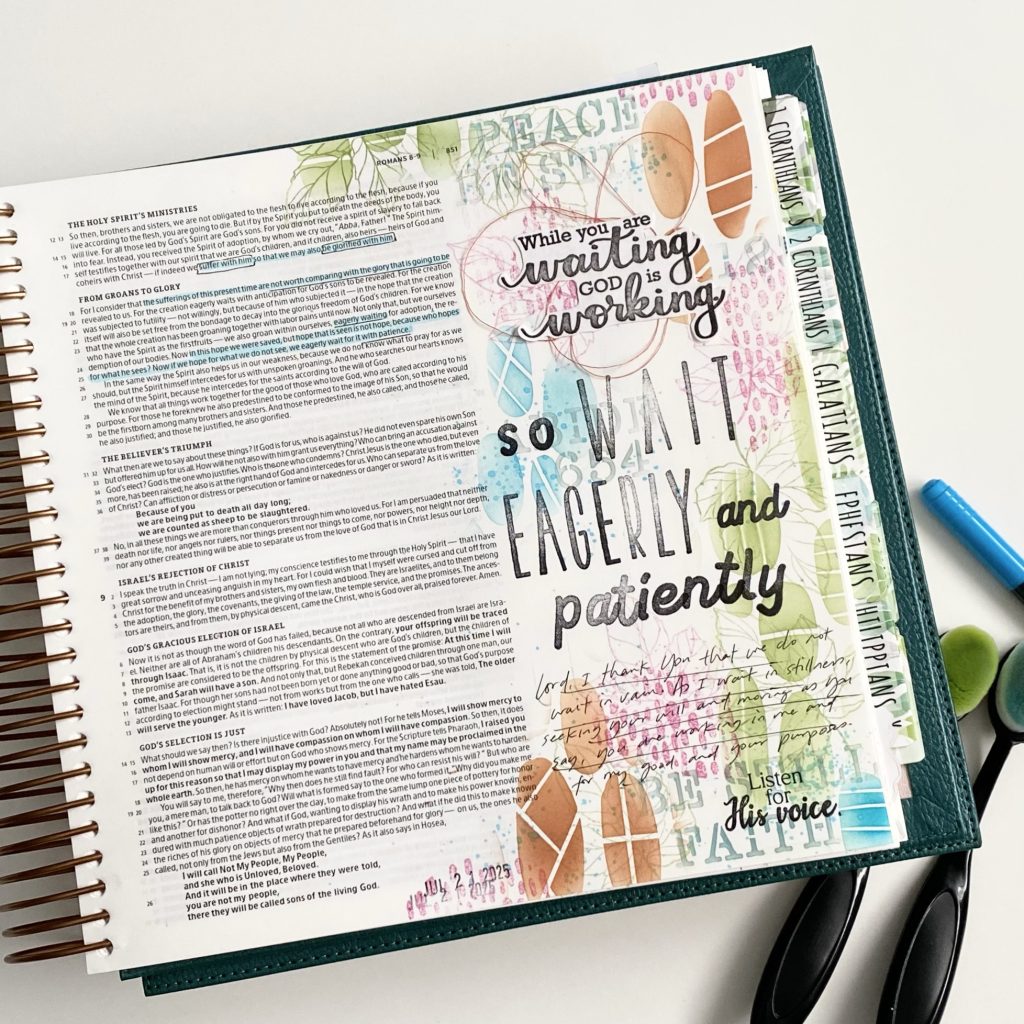 ROMANS 8–9 | 851
THE HOLY SPIRIT'S MINISTRIES
12 13 So then, brothers and sisters, we are not obligated to the flesh to live according to the flesh, because if you
live according to the flesh, you are going to die. But if by the Spirit you put to death the deeds of the body, you
14 15 will live. For all those led by God's Spirit are God's sons. For you did not receive a spirit of slavery to fall back
16 into fear. Instead, you received the Spirit of adoption, by whom we cry out, "Abba, Father!" The Spirit him-
17 self testifies together with our spirit that we are God's children, and if children, also heirs — heirs of God and
coheirs with Christ — if indeed we suffer with him so that we may also be glorified with him.
FROM GROANS TO GLORY
18 For I consider that the sufferings of this present time are not worth comparing with the glory that is going to be
19 revealed to us. For the creation eagerly waits with anticipation for God's sons to be revealed. For the creation
20 was subjected to futility — not willingly, but because of him who subjected it — in the hope that the creation
21 itself will also be set free from the bondage to decay into the glorious freedom of God's children. For we know
22 that the whole creation has been groaning together with labor pains until now. Not only that, but we ourselves
23 who have the Spirit as the firstfruits — we also groan within ourselves, eagerly waiting for adoption, the re-
24 demption of our bodies. Now in this hope we were saved, but hope that is seen is not hope, because who hopes
25 for what he sees? Now if we hope for what we do not see, we eagerly wait for it with patience.
26 In the same way the Spirit also helps us in our weakness, because we do not know what to pray for as we
27 should, but the Spirit himself intercedes for us with unspoken groanings. And he who searches our hearts knows
the mind of the Spirit, because he intercedes for the saints according to the will of God.
28 We know that all things work together for the good of those who love God, who are called according to his
29 purpose. For those he foreknew he also predestined to be conformed to the image of his Son, so that he would
30 be the firstborn among many brothers and sisters. And those he predestined, he also called; and those he called,
he also justified; and those he justified, he also glorified.
THE BELIEVER'S TRIUMPH
31 32 What then are we to say about these things? If God is for us, who is against us? He did not even spare his own Son
33 but offered him up for us all. How will he not also with him grant us everything? Who can bring an accusation against
34 God's elect? God is the one who justifies. Who is the one who condemns? Christ Jesus is the one who died, but even
35 more, has been raised; he also is at the right hand of God and intercedes for us. Who can separate us from the love
36 of Christ? Can affliction or distress or persecution or famine or nakedness or danger or sword? As it is written:
Because of you
we are being put to death all day long;
we are counted as sheep to be slaughtered.
37 38 No, in all these things we are more than conquerors through him who loved us. For I am persuaded that neither
39 death nor life, nor angels nor rulers, nor things present nor things to come, nor powers, nor height nor depth,
nor any other created thing will be able to separate us from the love of God that is in Christ Jesus our Lord.
ISRAEL'S REJECTION OF CHRIST
9 2 I speak the truth in Christ — I am not lying; my conscience testifies to me through the Holy Spirit — that I have
3 great sorrow and unceasing anguish in my heart. For I could wish that I myself were cursed and cut off from
4 Christ for the benefit of my brothers and sisters, my own flesh and blood. They are Israelites, and to them belong
5 the adoption, the glory, the covenants, the giving of the law, the temple service, and the promises. The ances-
tors are theirs, and from them, by physical descent, came the Christ, who is God over all, praised forever. Amen.
GOD'S GRACIOUS ELECTION OF ISRAEL
6 Now it is not as though the word of God has failed, because not all who are descended from Israel are Isra-
7 el. Neither are all of Abraham's children his descendants. On the contrary, your offspring will be traced
8 through Isaac. That is, it is not the children by physical descent who are God's children, but the children of
9 the promise are considered to be the offspring. For this is the statement of the promise: At this time I will
10 come, and Sarah will have a son. And not only that, but Rebekah conceived children through one man, our
11 father Isaac. For though her sons had not been born yet or done anything good or bad, so that God's purpose
12 according to election might stand — not from works but from the one who calls — she was told, The older
13 will serve the younger. As it is written: I have loved Jacob, but I have hated Esau.
GOD'S SELECTION IS JUST
14 15 What should we say then? Is there injustice with God? Absolutely not! For he tells Moses, I will show mercy to
16 whom I will show mercy, and I will have compassion on whom I will have compassion. So then, it does
17 not depend on human will or effort but on God who shows mercy. For the Scripture tells Pharaoh, I raised you
up for this reason so that I may display my power in you and that my name may be proclaimed in the
18 whole earth. So then, he has mercy on whom he wants to have mercy and he hardens whom he wants to harden.
19 You will say to me, therefore, "Why then does he still find fault? For who can resist his will?" But who are
20 you, a mere man, to talk back to God? Will what is formed say to the one who formed it, "Why did you make me
21 like this?" Or has the potter no right over the clay, to make from the same lump one piece of pottery for honor
22 and another for dishonor? And what if God, wanting to display his wrath and to make his power known, en-
23 dured with much patience objects of wrath prepared for destruction? And what if he did this to make known
24 the riches of his glory on objects of mercy that he prepared beforehand for glory — on us, the ones he also
25 called, not only from the Jews but also from the Gentiles? As it also says in Hosea,
I will call Not My People, My People,
and she who is Unloved, Beloved.
26 And it will be in the place where they were told,
you are not my people,
there they will be called sons of the living God.
JUL 2 2025
PEACE
While you are
waiting
GOD is
working
so WAIT
EAGERLY and
patiently
Lord, I thank You that we do not
wait in vain. As I wait in stillness,
seeking your will and moving as you
say, you are working in me and
for my good and your purpose.
BE STILL
FAITH
Listen
for
His voice.
1 CORINTHIANS
2 CORINTHIANS
GALATIANS
EPHESIANS
PHILIPPIANS